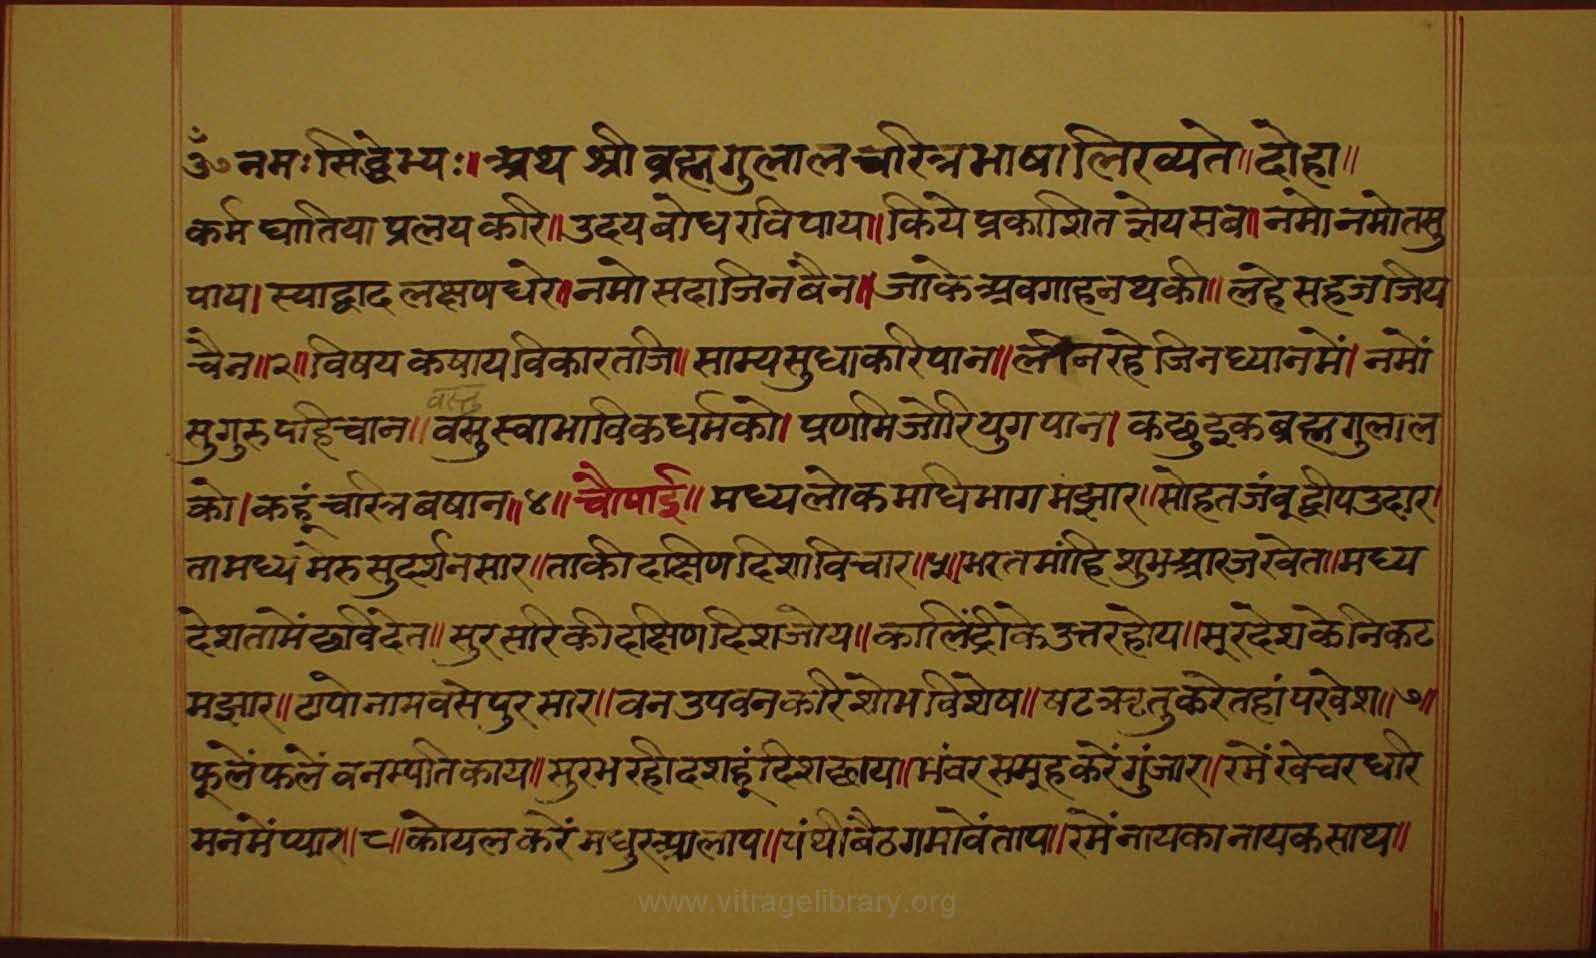 ॐ नमः सिद्धेभ्यः। अथ श्री ब्रह्मगुलाल चरित्र भाषा लिख्यते॥ दोहा॥
कर्म घातिया प्रलय करि॥ उदय बोध रवि पाय॥ किये प्रकाशित ज्ञेय सब॥ नमो नमो तसु
पाय। स्याद्वाद लक्षण धरे॥ नमो सदा जिन बैन॥ जाके अवगाहन थकी॥ लहे सहज जिय
चैन॥२॥ विषय कषाय विकार तजि॥ साम्य सुधा करि पान॥ लीन रहे जिन ध्यान में। नमों
वस्तु
सुगुरु पहिचान॥ वसु स्वाभाविक धर्म को। प्रणमि जोरि युग पान। कछु इक ब्रह्म गुलाल
को। कहूं चरित्र बषान॥४॥ चौपाई॥ मध्य लोक मधि भाग मंझार॥ सोहत जंबू द्वीप उदार।
ता मध्य मेरु सुदर्शन सार॥ ताकी दक्षिण दिशा विचार॥५॥ भरत मांहि शुभ आरज खेत॥ मध्य
देश तामें छवि देत॥ सुर सरि की दक्षिण दिश जोय॥ कालिंद्री के उत्तर होय॥ सूर देश के निकट
मझार॥ टापो नाम वसे पुर सार॥ वन उपवन करि शोभ विशेष॥ षट ऋतु करे तहां परवेश॥७॥
फूलें फलें वनस्पति काय॥ सुरभ रही दशहूं दिश छाय॥ भंवर समूह करें गुंजार॥ रमें खेचर धरि
मन में प्यार॥८॥ कोयल करें मधुर आलाप॥ पंथी बैठ गमावें ताप॥ रमें नायका नायक साथ॥
www.vitragelibrary.org